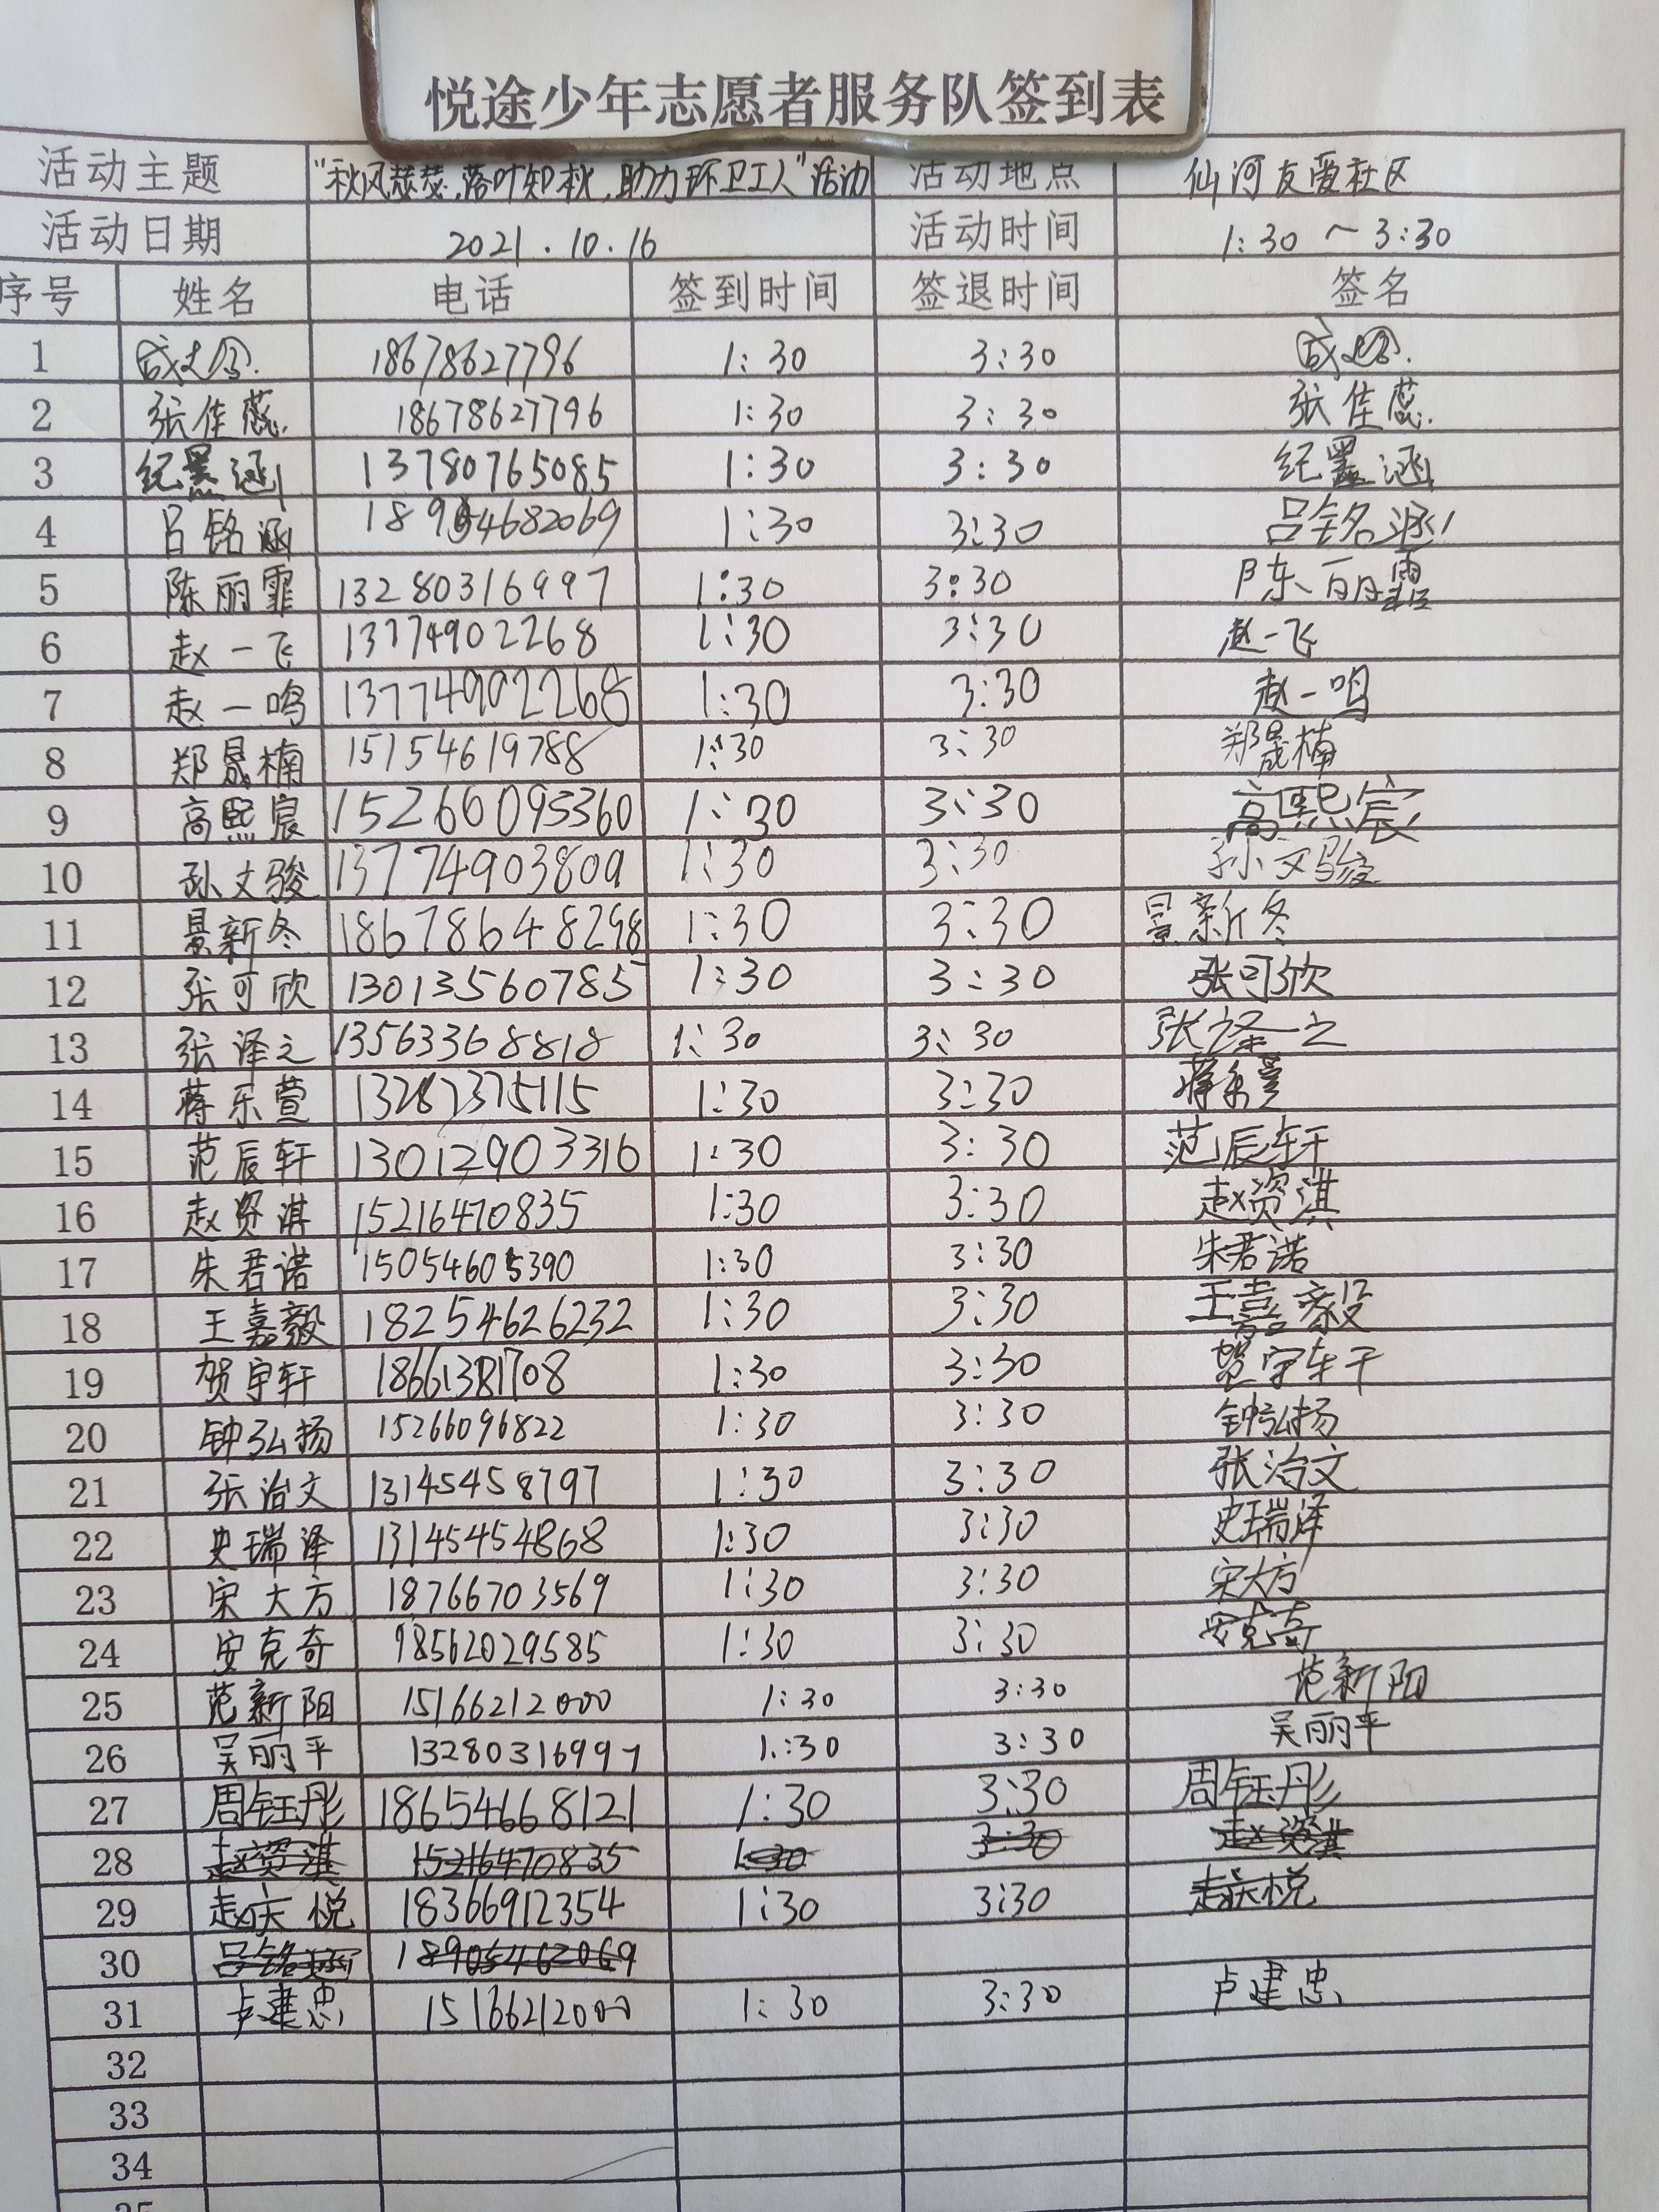 悦途少年志愿者服务队签到表
活动主题 "秋风瑟瑟,落叶知秋,助力环卫工人"活动 活动地点 仙河友爱社区
活动日期 2021.10.16 活动时间 1:30～3:30
序号 姓名 电话 签到时间 签退时间 签名
1 18678627796 1:30 3:30
2 张佳蕊. 18678627796 1:30 3:30 张佳蕊.
3 纪墨涵 13780765085 1:30 3:30 纪墨涵
4 吕铭涵 18954682069 1:30 3:30 吕铭涵
5 陈丽霏 13280316997 1:30 3:30 陈丽霏
6 赵一飞 13774902268 1:30 3:30 赵一飞
7 赵一鸣 13774902268 1:30 3:30 赵一鸣
8 郑晟楠 15154619788 1:30 3:30 郑晟楠
9 高熙宸 15266095360 1:30 3:30 高熙宸
10 孙文骏 13774903809 1:30 3:30 孙文骏
11 景新冬 18678648298 1:30 3:30 景新冬
12 张可欣 13013560785 1:30 3:30 张可欣
13 张泽之 13563368818 1:30 3:30 张泽之
14 蒋乐萱 1:30 3:30 蒋乐萱
15 范辰轩 13012903316 1:30 3:30 范辰轩
16 赵资淇 15216470835 1:30 3:30 赵资淇
17 朱君诺 15054605390 1:30 3:30 朱君诺
18 王嘉毅 18254626232 1:30 3:30 王嘉毅
19 贺宇轩 18661381708 1:30 3:30 贺宇轩
20 钟弘扬 15266096822 1:30 3:30 钟弘扬
21 张治文 13145458797 1:30 3:30 张治文
22 史瑞泽 13145454868 1:30 3:30 史瑞泽
23 宋大方 18766703569 1:30 3:30 宋大方
24 安克奇 18562029585 1:30 3:30 安克奇
25 范新阳 15166212000 1:30 3:30 范新阳
26 吴丽平 13280316997 1:30 3:30 吴丽平
27 周钰彤 18654668121 1:30 3:30 周钰彤
28 赵资淇 15216470835 1:30 3:30 赵资淇
29 赵庆悦 18366912354 1:30 3:30 赵庆悦
30 吕铭涵 18905462069
31 卢建忠 15166212000 1:30 3:30 卢建忠
32
33
34